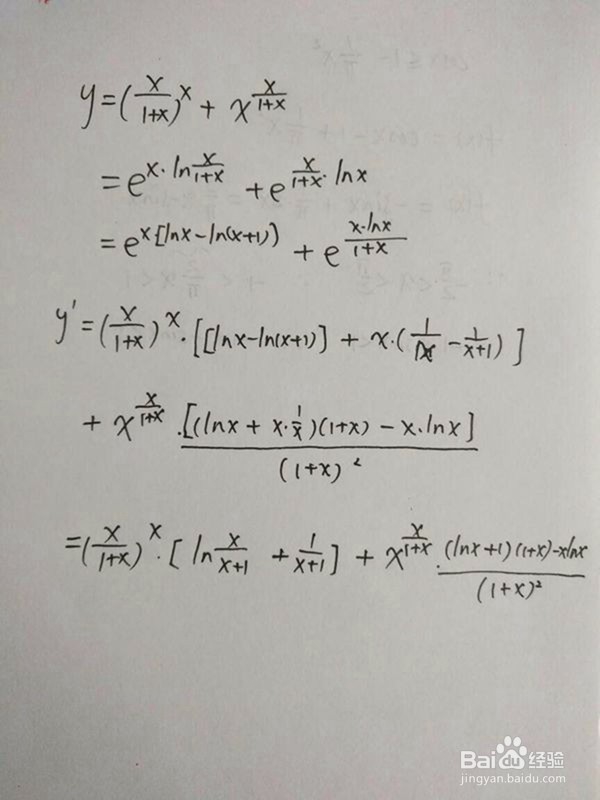 y=(x/(1+x))^x + x^(x/(1+x))
=e^(x·ln x/(1+x)) + e^(x/(1+x)·lnx)
=e^(x[lnx-ln(x+1)]) + e^(x·lnx/(1+x))
y'=(x/(1+x))^x·[[lnx-ln(x+1)] + x·(1/x - 1/(x+1))]
+ x^(x/(1+x))·[(lnx + x·1/x)(1+x) - x·lnx]/(1+x)^2
=(x/(1+x))^x·[ln x/(x+1) + 1/(x+1)] + x^(x/(1+x))·(lnx+1)(1+x)-xlnx/(1+x)^2
Baidu经验
jingyan.baidu.com